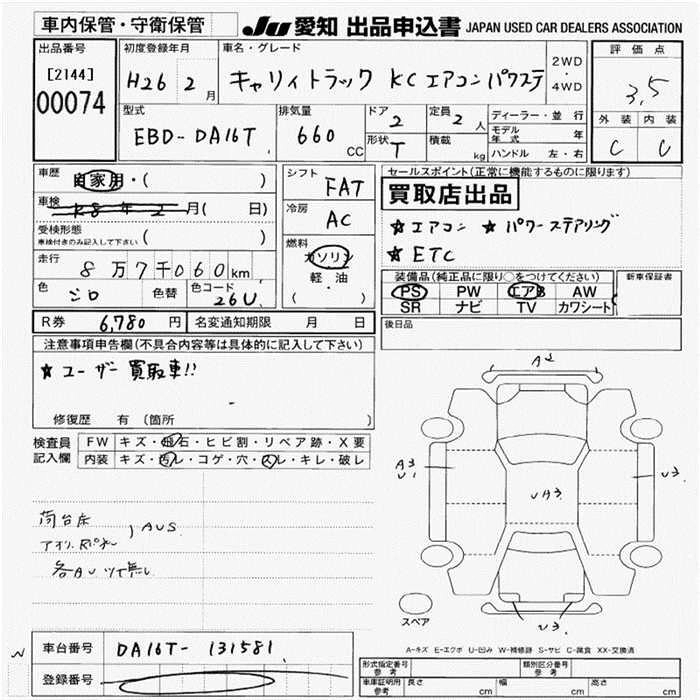 車内保管・守衛保管
JU 愛知 出品申込書 JAPAN USED CAR DEALERS ASSOCIATION
出品番号
[2144]
00074
初度登録年月
H26 2 月
車名・グレード
キャリィトラック KC エアコン パワステ
2WD
・
4WD
評価点
3,5
外装 内装
C C
型式
EBD-DA16T
排気量
660 CC
ドア
2
形状
T
定員
2 人
積載
kg
ディーラー・並行
モデル年式 年
ハンドル 左・右
車歴
自家用・( )
車検
R8年2月( 日)
受検形態
車検付きのみ記入して下さい ( )
走行
8万7千060km
色
シロ
色替
色コード
26U
シフト
FAT
冷房
AC
燃料
ガソリン
軽・油
( )
セールスポイント(正常に機能するものに限ります)
買取店出品
★エアコン ★パワーステアリング
★ETC
装備品(純正品に限り○をつけてください)
PS PW エアB AW
SR ナビ TV カワシート
新車保証書
後日品
R券 6,780 円
名変通知期限 月 日
注意事項申告欄(不具合内容等は具体的に記入して下さい)
★ユーザー買取車!!
修復歴 有 (箇所 )
検査員
記入欄
FW キズ・飛石・ヒビ割・リペア跡・X要
内装 キズ・汚レ・コゲ・穴・スレ・キレ・破レ
荷台床
AUS
各AUツヤ無し
A2
A3
U1
UA3
U3
U3
スペア
A-キズ E-エクボ U-凹み W-補修跡 S-サビ C-腐食 XX-交換済
車台番号 DA16T-131581
登録番号
形式指定番号
参考
類別区分番号
参考
車庫証明用
参考
長さ cm 幅 cm 高さ cm